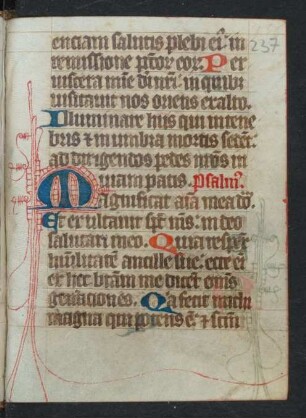 257
entiam salutis plebi ei᾽ in
remissione pctor̄ eor̄. Per
viscera mīe dī nr̄i in quib᾽
visitauit nos oriens ex alto.
Illuminare hiis qui in tene
bris ⁊ in umbra mortis sedēt
ad dirigendos pedes nr̄os in
uiam pacis. Psalm᾽.
Magnificat aīa mea dō.
Et exultauit sp̄c me᾽ in deo
salutari meo. Quia respex̄
humilitatē ancille sue ecce eī
ex hoc beatam me dicēt om̄s
generaciones. Qa fecit michi
magna qui potens ē ⁊ sc̄m